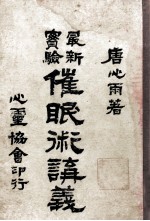 唐心雨著
最新實驗
催眠術講義
心靈協會印行